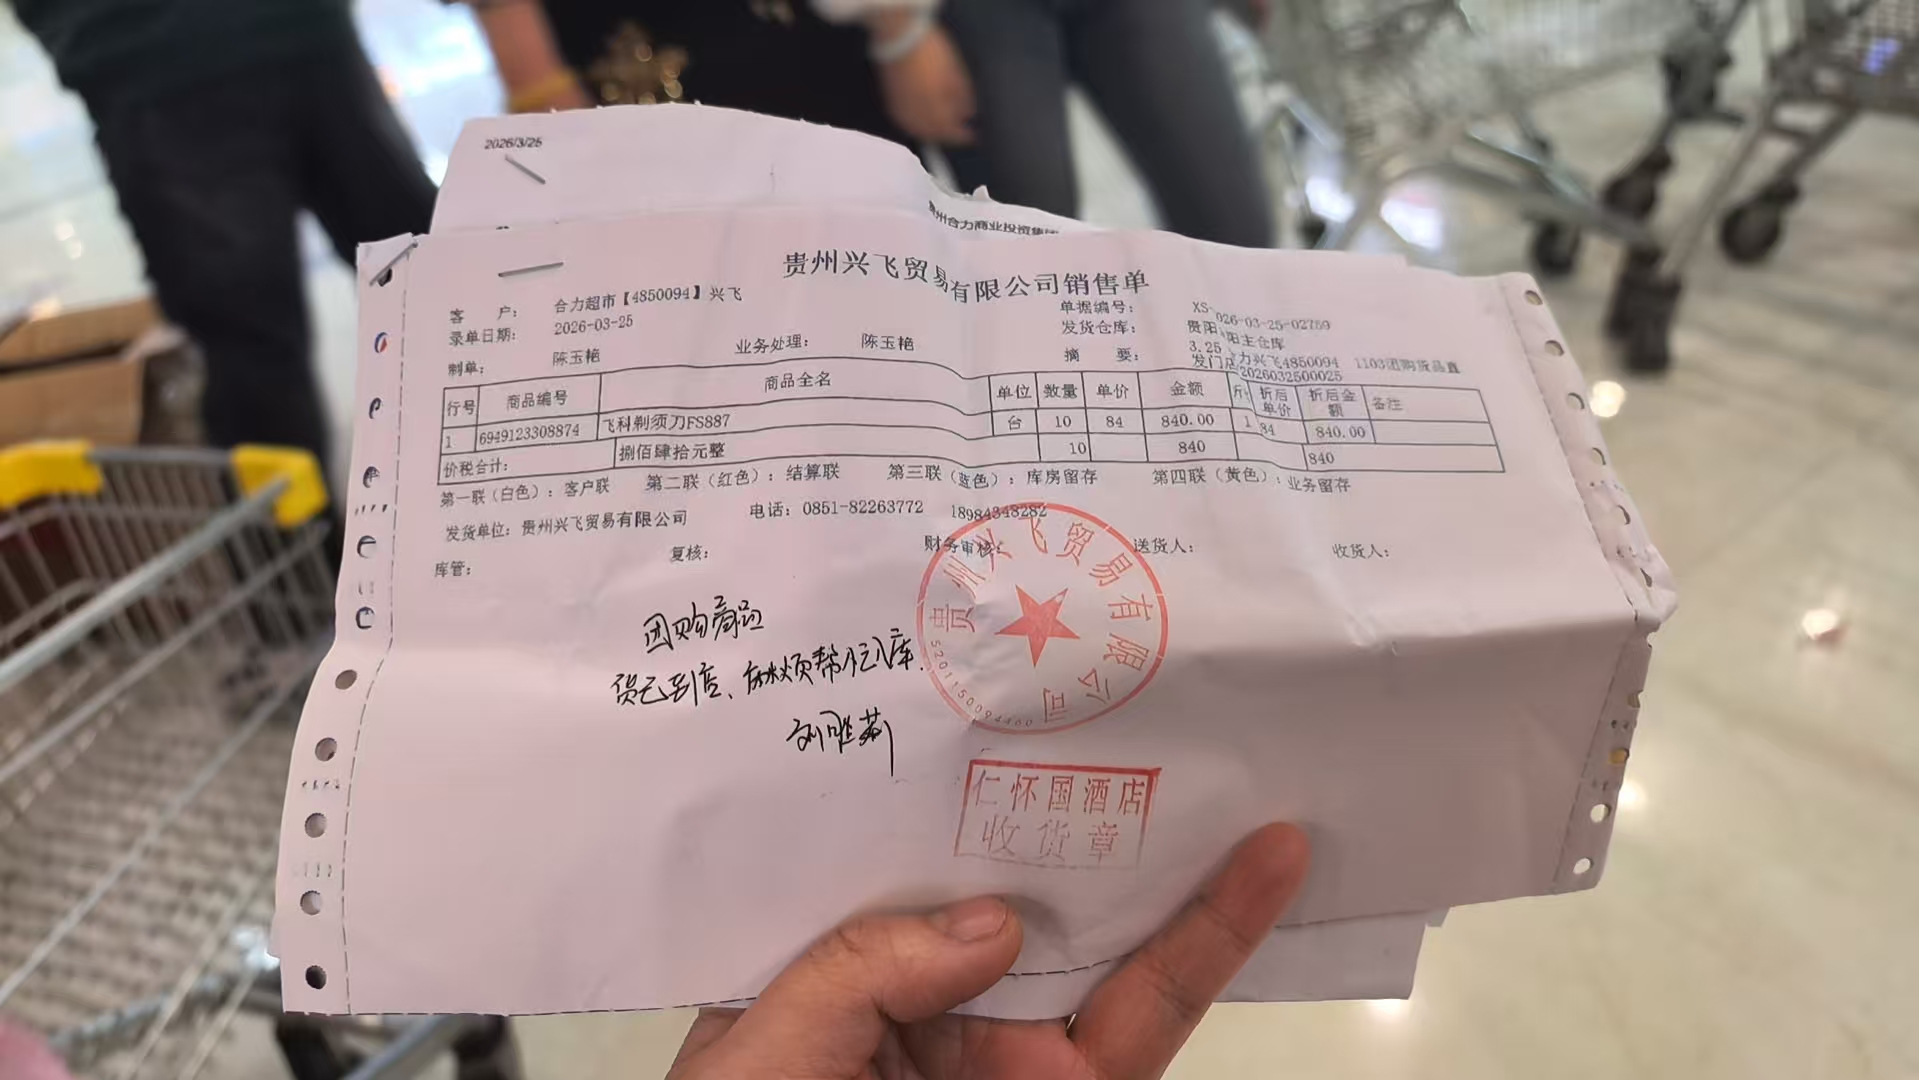 2026/3/25
州合力商业投资集团
贵州兴飞贸易有限公司销售单
客 户： 合力超市【4850094】兴飞 单据编号： XS-026-03-25-02759
录单日期： 2026-03-25 发货仓库： 贵阳 阳主仓库
制单： 陈玉艳 业务处理： 陈玉艳 摘 要： 3.25 合力兴飞4850094 1103团购货品直
发门店2026032500025
行号 商品编号 商品全名 单位 数量 单价 金额 折后单价 折后金额 备注
1 6949123308874 飞科剃须刀FS887 台 10 84 840.00 1 84 840.00
价税合计： 捌佰肆拾元整 10 840 840
第一联（白色）：客户联 第二联（红色）：结算联 第三联（蓝色）：库房留存 第四联（黄色）：业务留存
发货单位：贵州兴飞贸易有限公司 电话：0851-82263772 18984348282
库管： 复核： 财务审核： 送货人： 收货人：
贵州兴飞贸易有限公司
5201150094400
团购商品
货已到店、麻烦帮忙入库.
仁怀国酒店
收货章